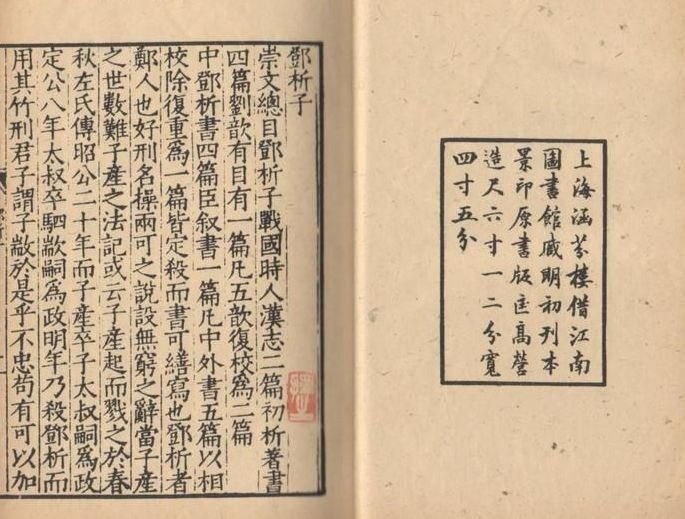 上海涵芬樓借江南
圖書館藏明初刊本
景印原書版匡高營
造尺六寸一二分寬
四寸五分
鄧析子
崇文總目鄧析子戰國時人漢志二篇初析著書
四篇劉歆有目有一篇凡五歆復校爲二篇
中鄧析書四篇臣叙書一篇凡中外書五篇以相
校除復重爲一篇皆定殺而書可繕寫也鄧析者
鄭人也好刑名操兩可之說設無窮之辭當子產
之世數難子產之法記或云子產起而戮之於春
秋左氏傳昭公二十年而子產卒子太叔嗣爲政
定公八年太叔卒駟歂嗣爲政明年乃殺鄧析而
用其竹刑君子謂子歂於是乎不忠苟有可以加